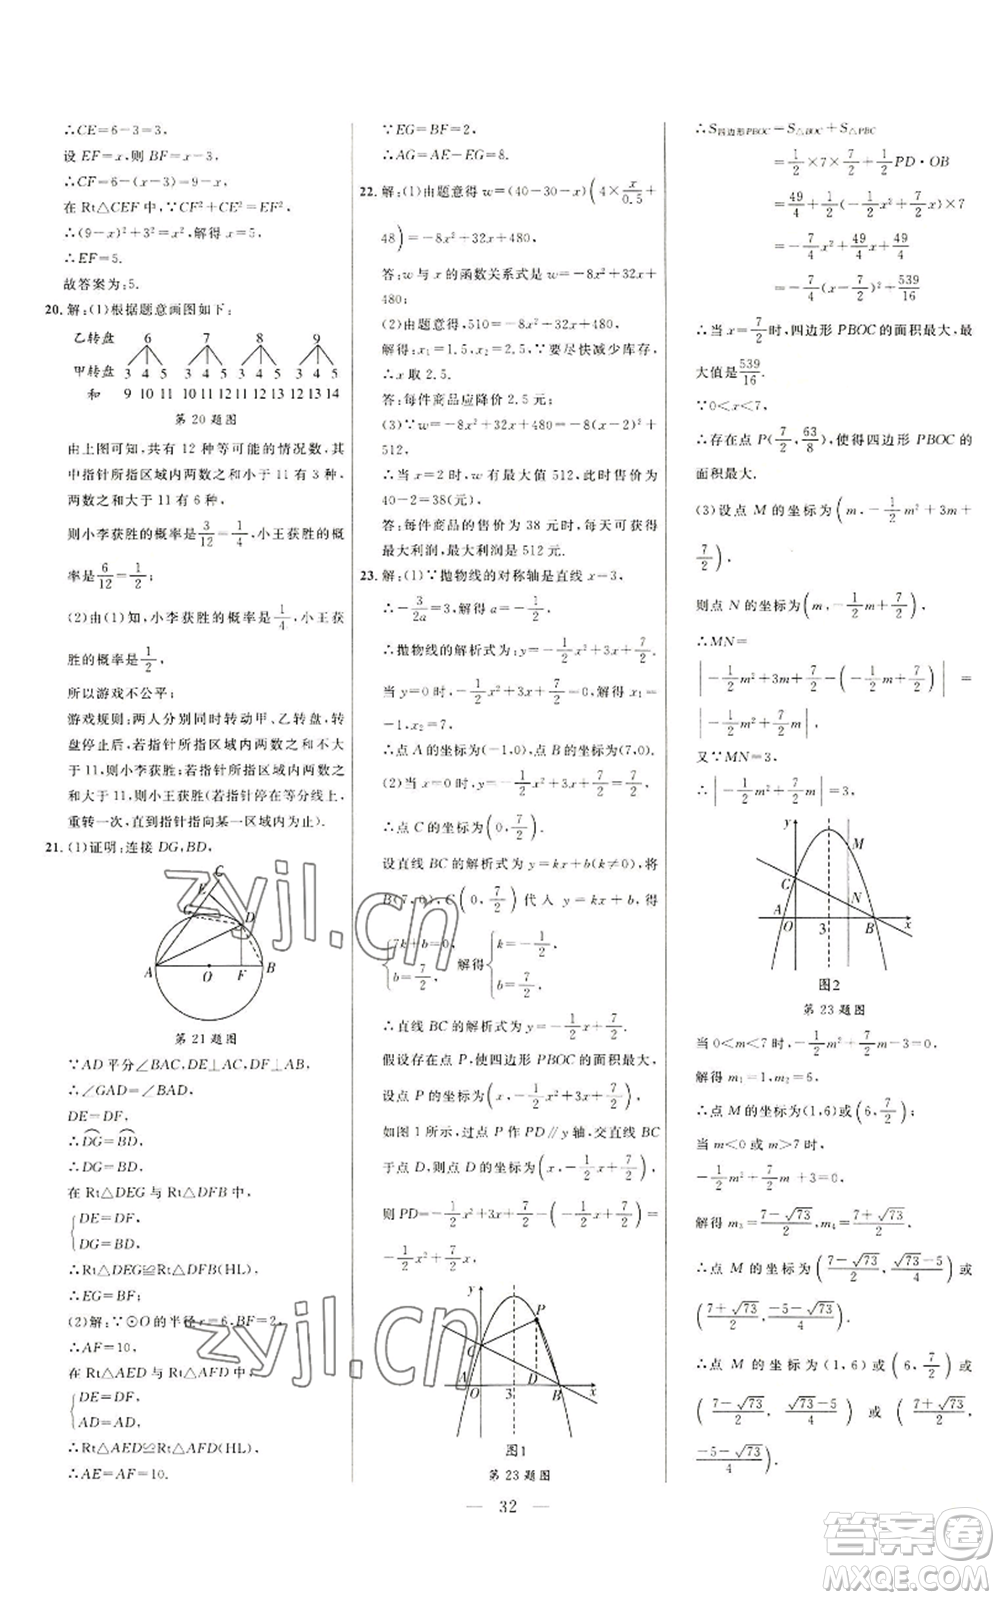 ∴CE=6-3=3,
设 EF=x,则 BF=x-3,
∴CF=6-(x-3)=9-x,
在 Rt△CEF 中,∵CF²+CE²=EF²,
∴(9-x)²+3²=x²,解得 x=5,
∴EF=5.
故答案为:5.
20.解:(1)根据题意画图如下:
乙转盘 6 7 8 9
甲转盘 3 4 5 3 4 5 3 4 5 3 4 5
和 9 10 11 10 11 12 11 12 13 12 13 14
第20题图
由上图可知,共有 12 种等可能的情况数,其
中指针所指区域内两数之和小于 11 有 3 种,
两数之和大于 11 有 6 种,
则小李获胜的概率是 3/12=1/4,小王获胜的概
率是 6/12=1/2;
(2)由(1)知,小李获胜的概率是 1/4,小王获
胜的概率是 1/2,
所以游戏不公平;
游戏规则:两人分别同时转动甲、乙转盘,转
盘停止后,若指针所指区域内两数之和小于
11,则小李获胜;若指针所指区域内两数之和大于
11,小王获胜(若指针停在等分线上,
重转一次,直到指针指向某一区域内为止).
21.(1)证明:连接 DG,BD,
C E D G A O F B
第21题图
∵AD 平分∠BAC,DE⊥AC,DF⊥AB,
∴∠GAD=∠BAD,
DE=DF,
∴DG=BD,
∴DG=DB,
在 Rt△DEG 与 Rt△DFB 中,
{DE=DF,
DG=BD,
∴Rt△DEG≌Rt△DFB(HL),
∴EG=BF;
(2)解:∵⊙O 的半径 r=6,BF=2,
∴AF=10,
在 Rt△AED 与 Rt△AFD 中,
{DE=DF,
AD=AD,
∴Rt△AED≌Rt△AFD(HL),
∴AE=AF=10.
∵EG=BF=2,
∴AG=AE-EG=8.
22.解:(1)由题意得 w=(40-30-x)(4×x/0.5+
48)=-8x²+32x+480,
答:w 与 x 的函数关系式是 w=-8x²+32x+
480;
(2)由题意得,510=-8x²+32x+480,
解得:x₁=1.5,x₂=2.5,∵要尽快减少库存,
∴x 取 2.5.
答:每件商品应降价 2.5 元;
(3)∵w=-8x²+32x+480=-8(x-2)²+
512,
∴当 x=2 时,w 有最大值 512,此时售价为
40-2=38(元),
答:每件商品的售价为 38 元时,每天可获得
最大利润,最大利润是 512 元.
23.解:(1)∵抛物线的对称轴是直线 x=3,
∴-3/2a=3,解得 a=-1/2,
∴抛物线的解析式为:y=-1/2x²+3x+7/2.
当 y=0 时,-1/2x²+3x+7/2=0,解得 x₁=
-1,x₂=7,
∴点 A 的坐标为(-1,0),点 B 的坐标为(7,0).
(2)当 x=0 时,y=-1/2x²+3x+7/2=7/2,
∴点 C 的坐标为(0,7/2),
设直线 BC 的解析式为 y=kx+b(k≠0),将
B(7,0),C(0,7/2)代入 y=kx+b,得
{7k+b=0, b=7/2, 解得{k=-1/2, b=7/2,
∴直线 BC 的解析式为 y=-1/2x+7/2.
假设存在点 P,使四边形 PBOC 的面积最大,
设点 P 的坐标为(x,-1/2x²+3x+7/2),
如图 1 所示,过点 P 作 PD∥y 轴,交直线 BC
于点 D,则点 D 的坐标为(x,-1/2x+7/2),
则 PD=-1/2x²+3x+7/2-(-1/2x+7/2)=
-1/2x²+7/2x,
y P C A O 3 D B x
图1
第23题图
∴S四边形PBOC=S△BOC+S△PBC
=1/2×7×7/2+1/2PD·OB
=49/4+1/2(-1/2x²+7/2x)×7
=-7/4x²+49/4x+49/4
=-7/4(x-7/2)²+539/16
∴当 x=7/2时,四边形 PBOC 的面积最大,最
大值是539/16.
∵0<x<7,
∴存在点 P(7/2,63/8),使得四边形 PBOC 的
面积最大.
(3)设点 M 的坐标为(m,-1/2m²+3m+
7/2),
则点 N 的坐标为(m,-1/2m+7/2),
∴MN=
|-1/2m²+3m+7/2-(-1/2m+7/2)|=
|-1/2m²+7/2m|,
又∵MN=3,
∴|-1/2m²+7/2m|=3,
y M C N A O 3 B x
图2
第23题图
当 0<m<7 时,-1/2m²+7/2m-3=0,
解得 m₁=1,m₂=6,
∴点 M 的坐标为(1,6)或(6,7/2);
当 m<0 或 m>7 时,
-1/2m²+7/2m+3=0,
解得 m₃=(7-√73)/2,m₄=(7+√73)/2,
∴点 M 的坐标为((7-√73)/2,(√73-5)/4)或
((7+√73)/2,(-5-√73)/4).
∴点 M 的坐标为(1,6)或(6,7/2)或
((7-√73)/2,(√73-5)/4)或((7+√73)/2,
(-5-√73)/4).
— 32 —
zyjl.cn
zyjl.cn
答案卷
MXQE.COM